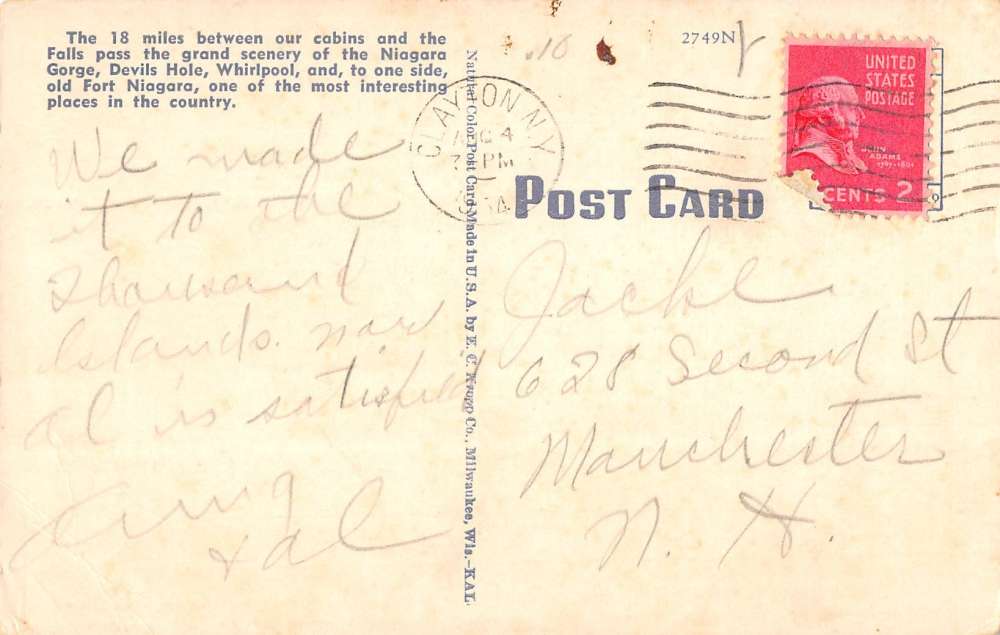 The 18 miles between our cabins and the
Falls pass the grand scenery of the Niagara
Gorge, Devils Hole, Whirlpool, and, to one side,
old Fort Niagara, one of the most interesting
places in the country.
2749N
.10
UNITED
STATES
POSTAGE
JOHN
ADAMS
CENTS 2
CLAYTON N.Y.
AUG 4
PM
POST CARD
Natural Color Post Card Made in U.S.A. by E. C. Kropp Co., Milwaukee, Wis.-KAL
We made
it to the
Thousand
Islands. now
Al is satisfied
+ Al
Jacke
628 Second St
Manchester
N. H.